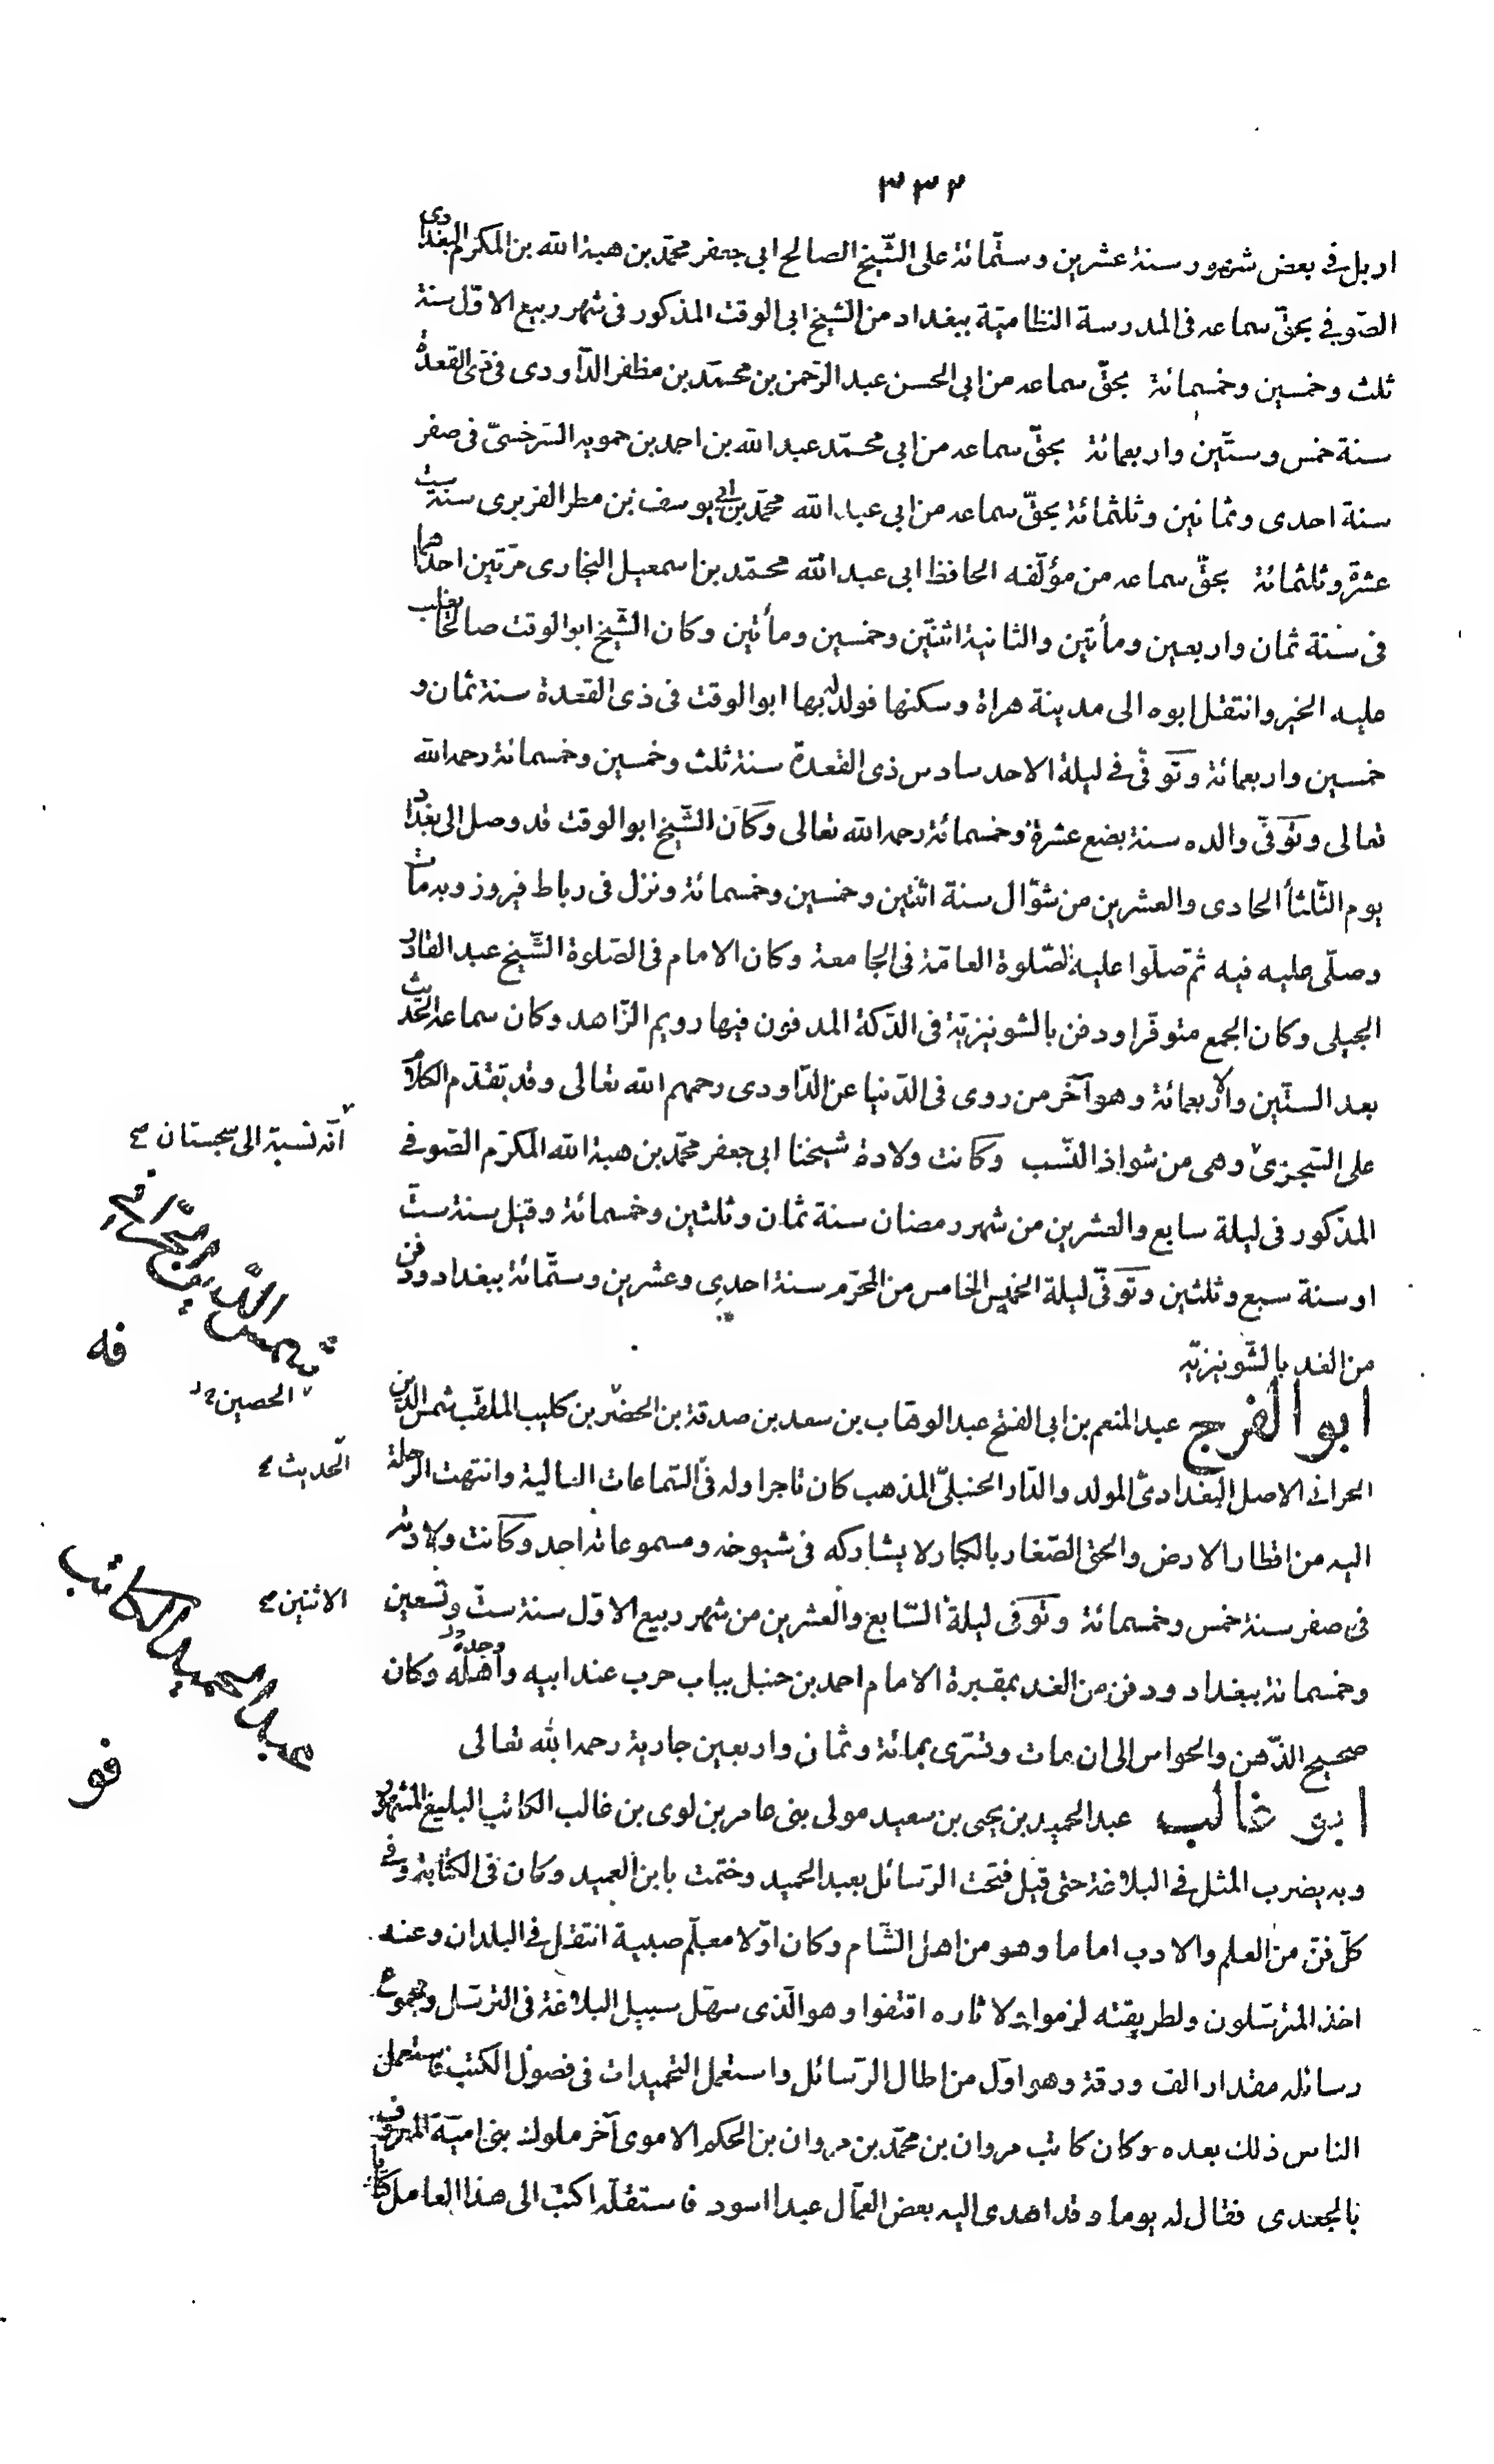 ٣٣٢
اربل فى بعض شهور سنة عشرين وستّمائة على الشّيخ الصالح ابى جعفر محمّد بن هبة الله بن المكرّم البغدادى
الصّوفى بحقّ سماعه فى المدرسة النظاميّة ببغداد من الشيخ ابى الوقت المذكور فى شهر ربيع الاوّل سنة
ثلث وخمسين وخمسمائة بحقّ سماعه من ابى الحسن عبد الرّحمن بن محمّد بن مظفر الدّاودى فى ذى القعدة
سنة خمس وستّين واربعمائة بحقّ سماعه من ابى محمّد عبد الله بن احمد بن حمويه السّرخسىّ فى صفر
سنة احدى وثمانين وثلثمائة بحقّ سماعه من ابى عبد الله محمّد بن ابى يوسف بن مطر الفربرى سنة ستّ
عشرة وثلثمائة بحقّ سماعه من مؤلّفه الحافظ ابى عبد الله محمّد بن اسمعيل البخارى مرّتين احداهما
فى سنة ثمان واربعين ومأتين والثانية اثنتين وخمسين ومأتين وكان الشّيخ ابو الوقت صالحا يغلب
عليه الخير وانتقل ابوه الى مدينة هراة وسكنها فولد له بها ابو الوقت فى ذى القعدة سنة ثمان و
خمسين واربعمائة وتوفّى فى ليلة الاحد سادس ذى القعدة سنة ثلث وخمسين وخمسمائة رحمه الله
تعالى وتوفّى والده سنة بضع عشرة وخمسمائة رحمه الله تعالى وكان الشّيخ ابو الوقت قد وصل الى بغداد
يوم الثّلثأ الحادى والعشرين من شوّال سنة اثنتين وخمسين وخمسمائة ونزل فى رباط فيروز وبه مات
وصلّى عليه فيه ثمّ صلّوا عليه الصّلوة العامّة فى الجامعة وكان الامام فى الصّلوة الشّيخ عبد القادر
الجيلى وكان الجمع متوفّرا ودفن بالشونيزيّة فى الدّكة المدفون فيها رويم الزّاهد وكان سماعه الحديث
بعد السّتّين والاربعمائة وهو آخر من روى فى الدّنيا عن الدّاودى رحمهم الله تعالى وقد تقدّم الكلام
على السّجزىّ وهى من شواذ النّسب وكانت ولادة شيخنا ابى جعفر محمّد بن هبة الله المكرّم الصّوفى
انّه نسبة الى سجستان
المذكور فى ليلة سابع والعشرين من شهر رمضان سنة ثمان وثلثين وخمسمائة وقيل سنة ستّ
او سنة سبع وثلثين وتوفّى ليلة الخميس الخامس من المحرّم سنة احدى وعشرين وستّمائة ببغداد ودفن
من الغد بالشّونيزيّه
شمس الدّين الحرّانى
فه
ابو الفرج عبد المنعم بن ابى الفتح عبد الوهّاب بن سعد بن صدقة بن الخضر بن كليب الملقّب شمس الدّين
الحصين
الحرانى الاصل البغدادىّ المولد والدّار الحنبلىّ المذهب كان تاجرا وله فى السّماعات العالية وانتهت الرحلة
الحديث
اليه من اقطار الارض والحق الصّغار بالكبار لا يشاركه فى شيوخه ومسموعاته احد وكانت ولادته
فى صفر سنة خمس وخمسمائة وتوفى ليلة السّابع والعشرين من شهر ربيع الاوّل سنة ستّ وتسعين
الاثنين
وخمسمائة ببغداد ودفن من الغد بمقبرة الامام احمد بن حنبل بباب حرب عند ابيه واهله وكان
وجده
صحيح الذّهن والحواس الى ان مات وتسّرى بمائة وثمان واربعين جارية رحمه الله تعالى
عبد الحميد الكاتب
فو
ابو غالب عبد الحميد بن يحيى بن سعيد مولى بنى عامر بن لوى بن غالب الكاتب البليغ المشهور
وبه يضرب المثل فى البلاغة حتى قيل فتحت الرّسائل بعبد الحميد وختمت بابن العميد وكان فى الكتابة وفى
كلّ فنّ من العلم والادب اماما وهو من اهل الشّام وكان اوّلا معلّم صبية انتقل فى البلدان وعنه
اخذ المترسّلون ولطريقته لزموا ولاثاره اقتفوا وهو الّذى سهّل سبيل البلاغة فى الترسّل ومجموع
رسائله مقدار الف ورقة وهو اوّل من اطال الرّسائل واستعمل التحميدات فى فصول الكتب فاستعمل
الناس ذلك بعده وكان كاتب مروان بن محمّد بن مروان بن الحكم الاموى آخر ملوك بنى اميّة المعروف
بالجعدى فقال له يوما وقد اهدى اليه بعض العمّال عبدا اسود فاستقلّه اكتب الى هذا العامل كتابا